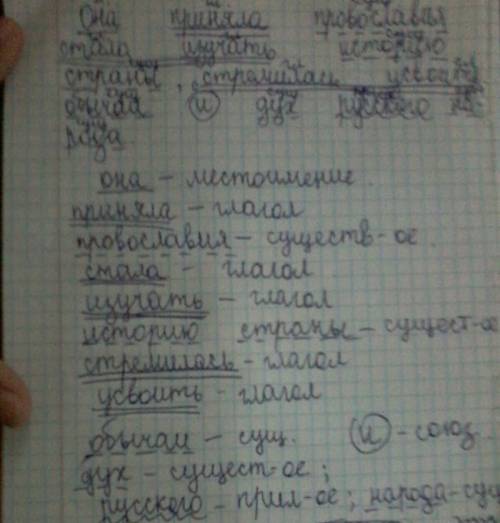 Она приняла провославия
стала изучать историю
страны, стремилась усвоить
обычаи и дух русского на-
рода.
она – местоимение.
приняла – глагол
провославия – существ-ое.
стала – глагол
изучать – глагол
историю страны – сущест-о
стремилась – глагол
усвоить – глагол
обычаи – сущ. и – союз.
дух – сущест-ое;
русского – прил-ое; народа – сущ